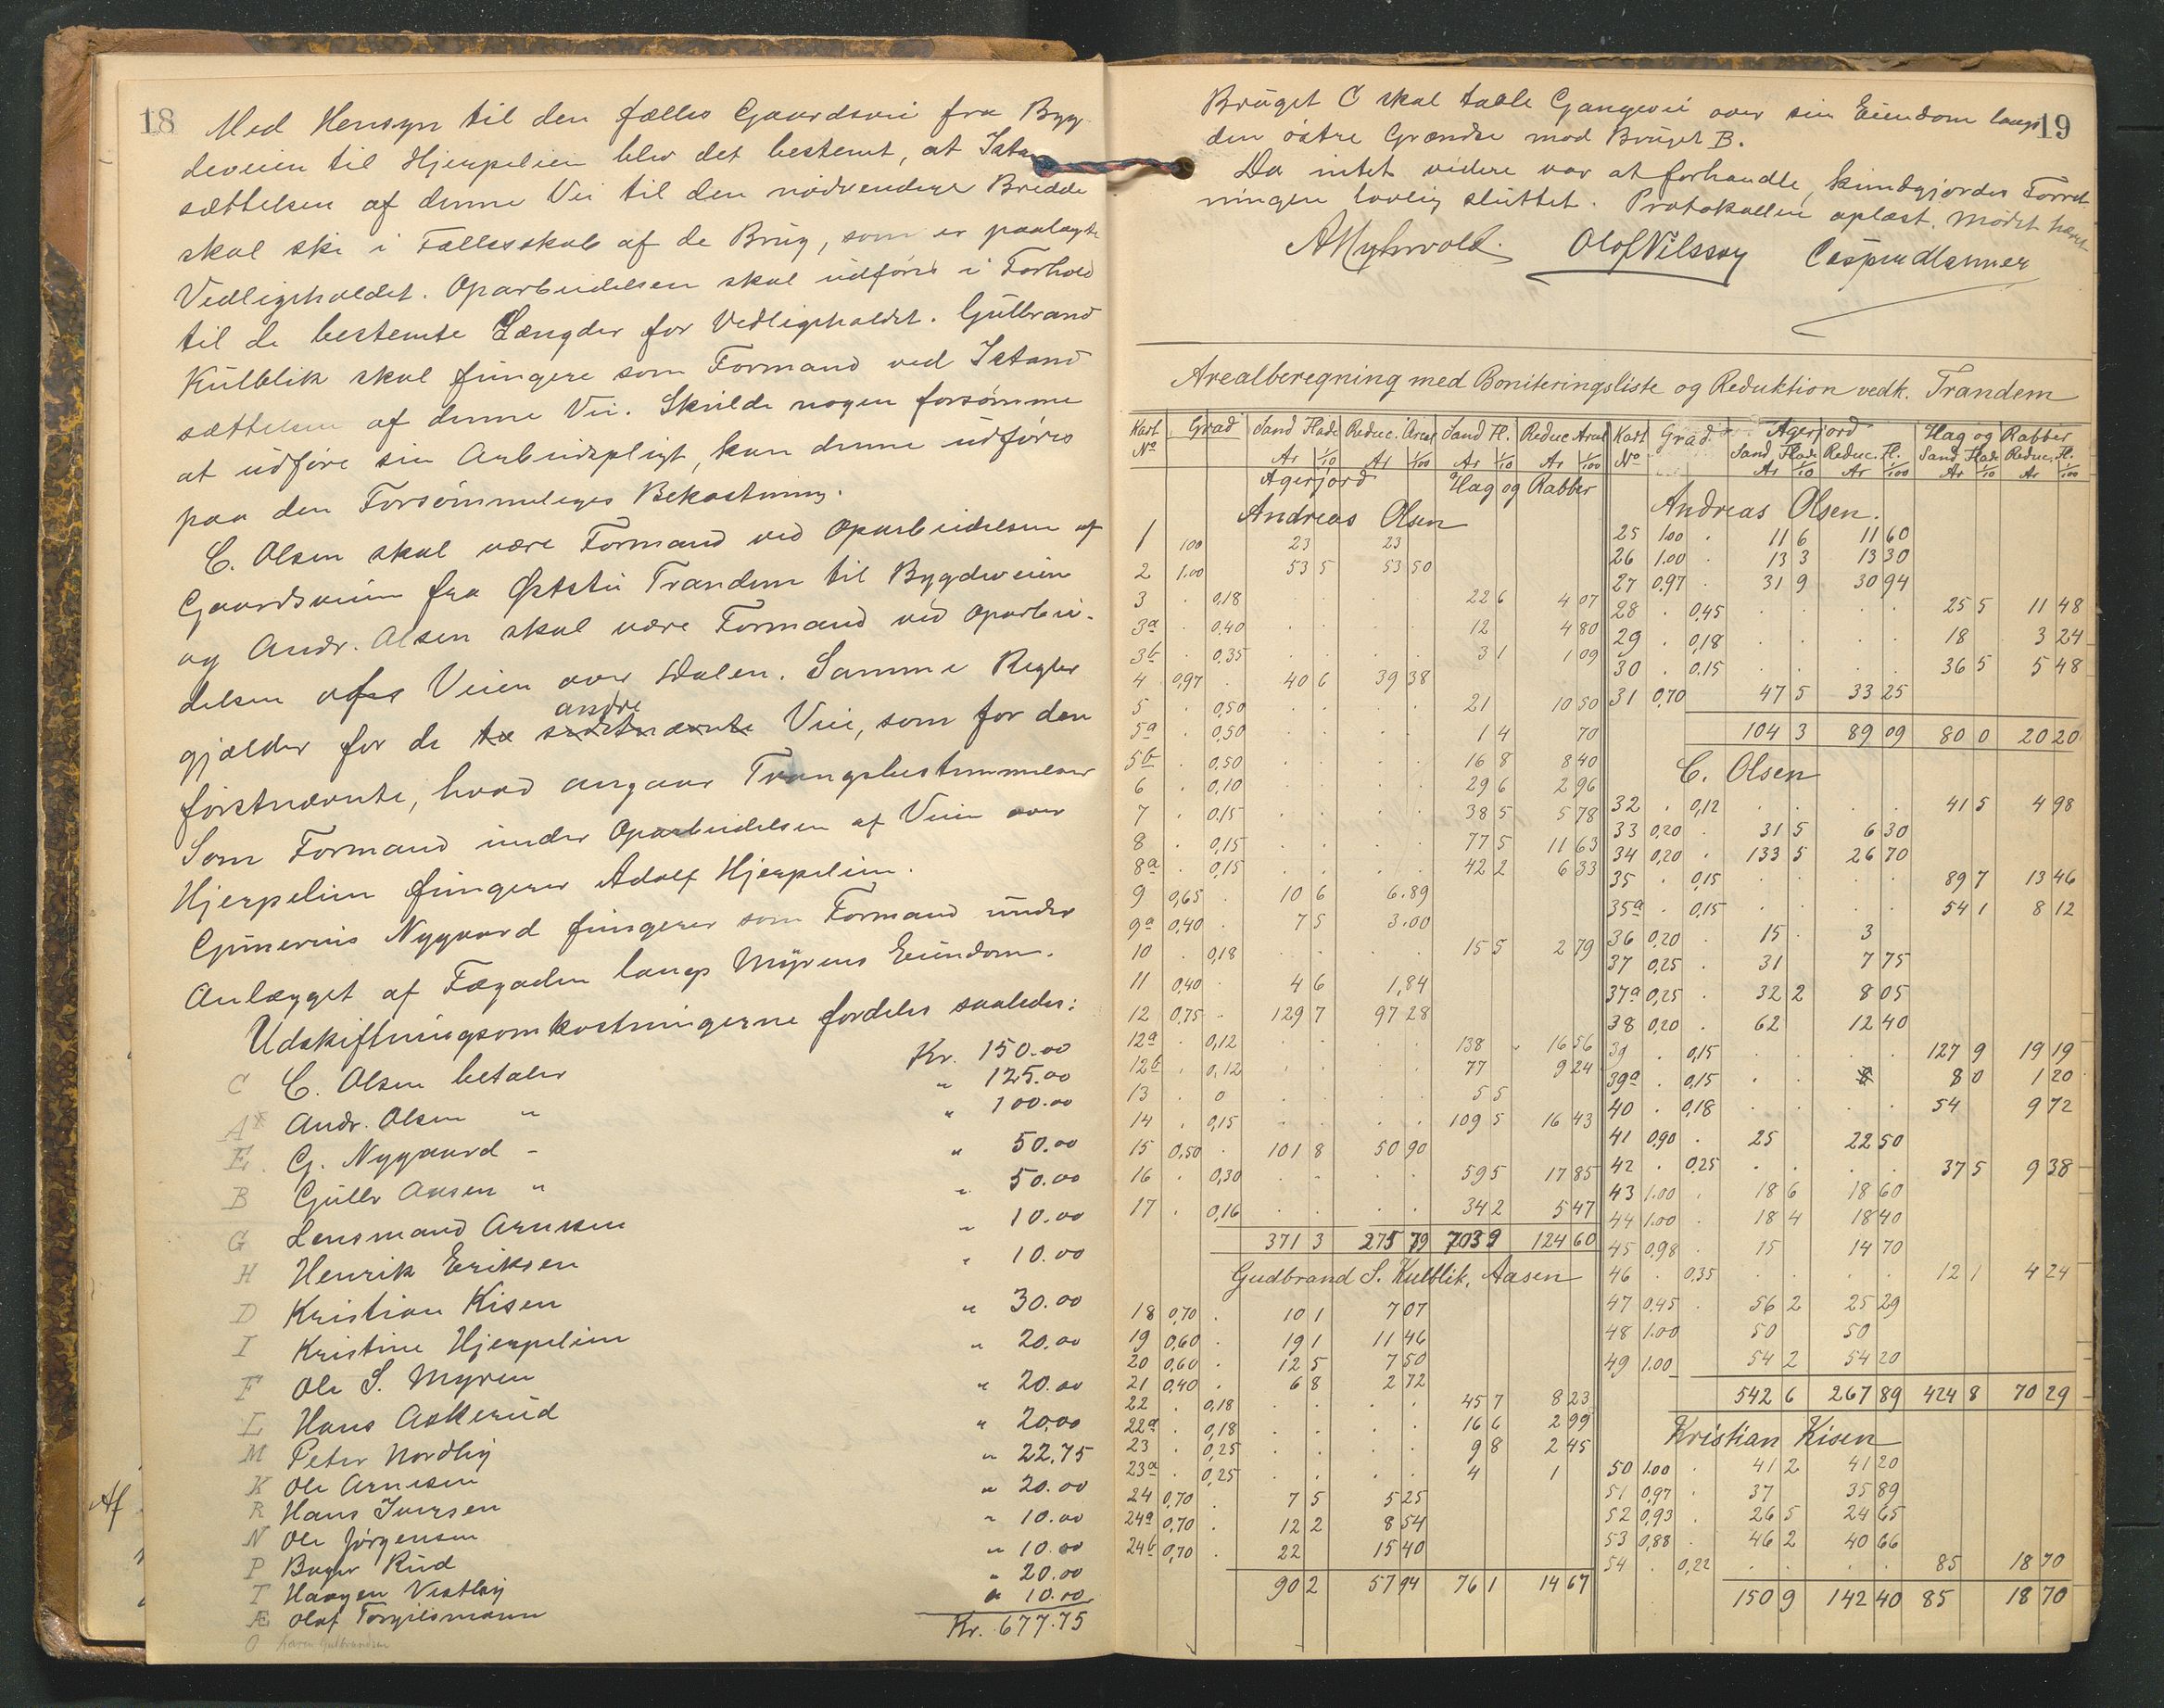 18
Med Hensyn til den fælles Gaardsvei fra Byg
deveien til Hjerpelien blev det bestemt, at Istand
sættelsen af denne Vei til den nødvendige Bredde
skal ske i Fællesskab af de Brug, som er paalagte
Vedligeholdet. Oparbeidelsen skal udføres i Forhold
til de bestemte Længder for Vedligeholdet. Gulbrand
Kulblik skal fungere som Formand ved Istand
sættelsen af denne Vei. Skulde nogen forsømme
at udføre sin Arbeidspligt, kan denne udføres
paa den Forsømmeliges Bekostning.
C. Olsen skal være Formand ved Oparbeidelsen af
Gaardsveien fra Øststu Trandem til Bygdeveien
og Andr. Olsen skal være Formand ved Oparbei-
delsen af Veien over Dalen. Samme Regler
gjælder for de to sidstnævnte andre Veie, som for den
førstnævnte, hvad angaar Tvangsbestemmelser
Som Formand under Oparbeidelsen af Veien over
Hjerpelien fungerer Adolf Hjerpelien.
Gunerius Nygaard fungerer som Formand under
Anlægget af Fægaden langs Myrens Eiendom.
Udskiftningsomkostningerne fordeles saaledes:
C C. Olsen betaler Kr. 150.00
A Andr. Olsen " " 125.00
E G. Nygaard - " 100.00
B Gulbr Aasen " " 50.00
G Lensmand Arnesen " 50.00
H Henrik Eriksen " 10.00
D Kristian Kisen " 10.00
I Kristine Hjerpelien " 30.00
F Ole S. Myren " 20.00
L Hans Askerud " 20.00
M Peter Nordby " 20.00
K Ole Arnesen " 22.75
R Hans Iversen " 20.00
N Ole Jørgensen " 10.00
P Rud " 10.00
T Haagen Vestby " 20.00
Æ Olaf " 10.00
O Karen Gulbrandsen Kr. 677.75
Af
19
Bruget C skal taale Gangevei over sin Eiendom langs
den østre Grændse mod Bruget B.
Da intet videre var at forhandle, kundgjordes Forret-
ningen lovlig sluttet. Protokollen oplæst. Mødet hævet
A Myhrvold. Olof Nilsson
Arealberegning med Boniteringsliste og Reduktion vedk. Trandem
Kart No Grad Sand Flade Reduc. Areal Sand Fl. Reduc Areal
Ar 1/10 Ar 1/100 Ar 1/10 Ar 1/100
Agerjord Hag og Rabber
Andreas Olsen
1 1.00 23 23
2 1.00 53 5 53 50
3 . 0,18 22 6 4 07
3a . 0,40 12 4 80
3b . 0,35 3 1 1 09
4 0,97 . 40 6 39 38
5 . 0,50 21 10 50
5a . 0,50 1 4 70
5b . 0,50 16 8 8 40
6 . 0,10 29 6 2 96
7 . 0,15 38 5 5 78
8 . 0,15 77 5 11 63
8a . 0,15 42 2 6 33
9 0,65 . 10 6 6.89
9a 0,40 . 7 5 3.00
10 . 0,18 15 5 2 79
11 0,40 . 4 6 1,84
12 0,75 . 129 7 97 28
12a . 0,12 138 16 56
12b . 0,12 77 9 24
13 . 0 5 5
14 . 0,15 109 5 16 43
15 0,50 . 101 8 50 90
16 . 0,30 59 5 17 85
17 . 0,16 34 2 5 47
371 3 275 79 703 9 124 60
Gudbrand S. Kulblik, Aasen
18 0,70 . 10 1 7 07
19 0,60 . 19 1 11 46
20 0,60 . 12 5 7 50
21 0,40 . 6 8 2 72
22 . 0,18 45 7 8 23
22a . 0,18 16 6 2 99
23 . 0,25 9 8 2 45
23a . 0,25 4 1
24 0,70 . 7 5 5 25
24a 0,70 . 12 2 8 54
24b 0,70 . 22 15 40
90 2 57 94 76 1 14 67
Kart No Grad Agerjord Hag og Rabber
Sand Flade Reduc. Fl. Sand Flade Reduc. Fl.
Ar 1/10 Ar 1/100 Ar 1/10 Ar 1/100
Andreas Olsen.
25 1.00 . 11 6 11 60
26 1.00 . 13 3 13 30
27 0,97 . 31 9 30 94
28 . 0,45 25 5 11 48
29 . 0,18 18 3 24
30 . 0.15 36 5 5 48
31 0,70 47 5 33 25
104 3 89 09 80 0 20 20
C. Olsen
32 . 0,12 41 5 4 98
33 0,20 . 31 5 6 30
34 0,20 . 133 5 26 70
35 . 0,15 89 7 13 46
35a . 0,15 54 1 8 12
36 0,20 . 15 3
37 0,25 . 31 7 75
37a 0,25 . 32 2 8 05
38 0,20 . 62 12 40
39 . 0,15 127 9 19 19
39a . 0,15 8 0 1 20
40 . 0,18 54 9 72
41 0,90 . 25 22 50
42 . 0,25 37 5 9 38
43 1.00 . 18 6 18 60
44 1.00 . 18 4 18 40
45 0,98 . 15 14 70
46 . 0,35 12 1 4 24
47 0,45 . 56 2 25 29
48 1.00 50 50
49 1.00 54 2 54 20
542 6 267 89 424 8 70 29
Kristian Kisen
50 1.00 . 41 2 41 20
51 0,97 . 37 35 89
52 0,93 . 26 5 24 65
53 0,88 . 46 2 40 66
54 . 0,22 85 18 70
150 9 142 40 85 18 70